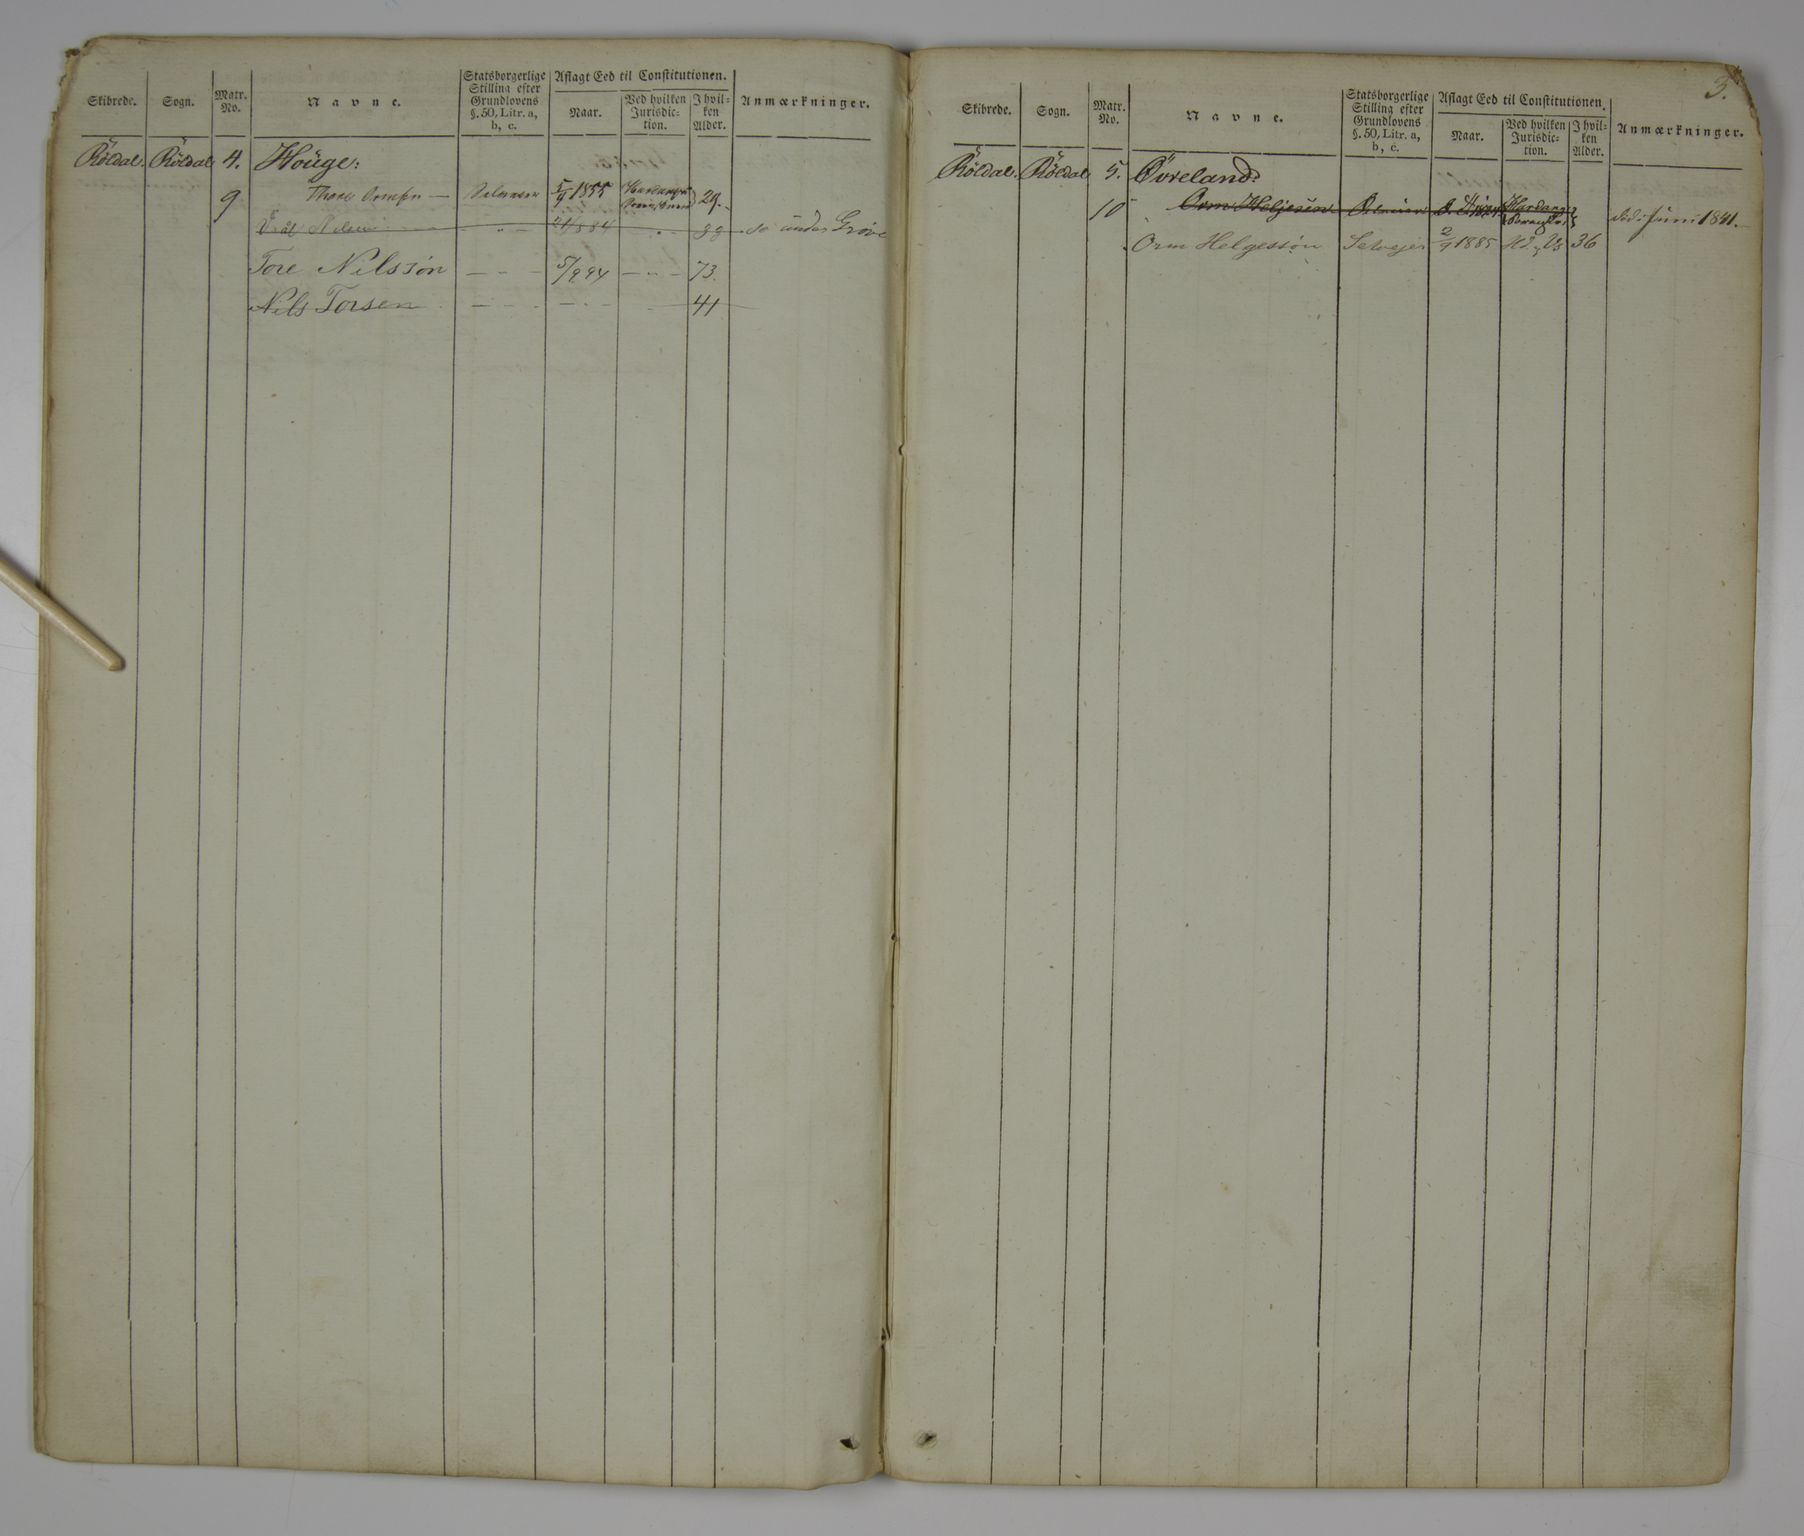 Skibrede. Sogn. Matr. No. Navne. Statsborgerlige Stilling efter Grundlovens §. 50, Litr. a, b, c. Aflagt Eed til Constitutionen. Naar. Ved hvilken Jurisdic-tion. I hvil-ken Alder. Anmærkninger.
Röldal. Röldal 4. Houge:
9 5/9 1855 29.
Nilsen 38 se under Gröve
Tore Nilssön 5/9 94 73.
Nils Torsen 41
3.
Skibrede. Sogn. Matr. No. Navne. Statsborgerlige Stilling efter Grundlovens §. 50, Litr. a, b, c. Aflagt Eed til Constitutionen. Naar. Ved hvilken Jurisdic-tion. I hvil-ken Alder. Anmærkninger.
Röldal. Röldal 5. Övreland:
10 Orm Heljesün Hardang död i Juni 1841.
Orm Helgessön Selvejer 2/9 1885 36